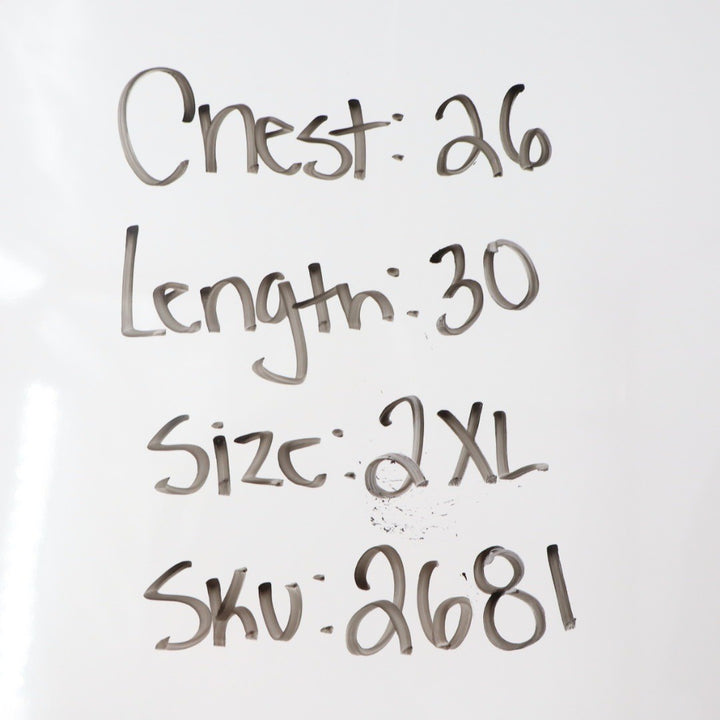 Chest: 26
Length: 30
Size: 2XL
SKU: 2681